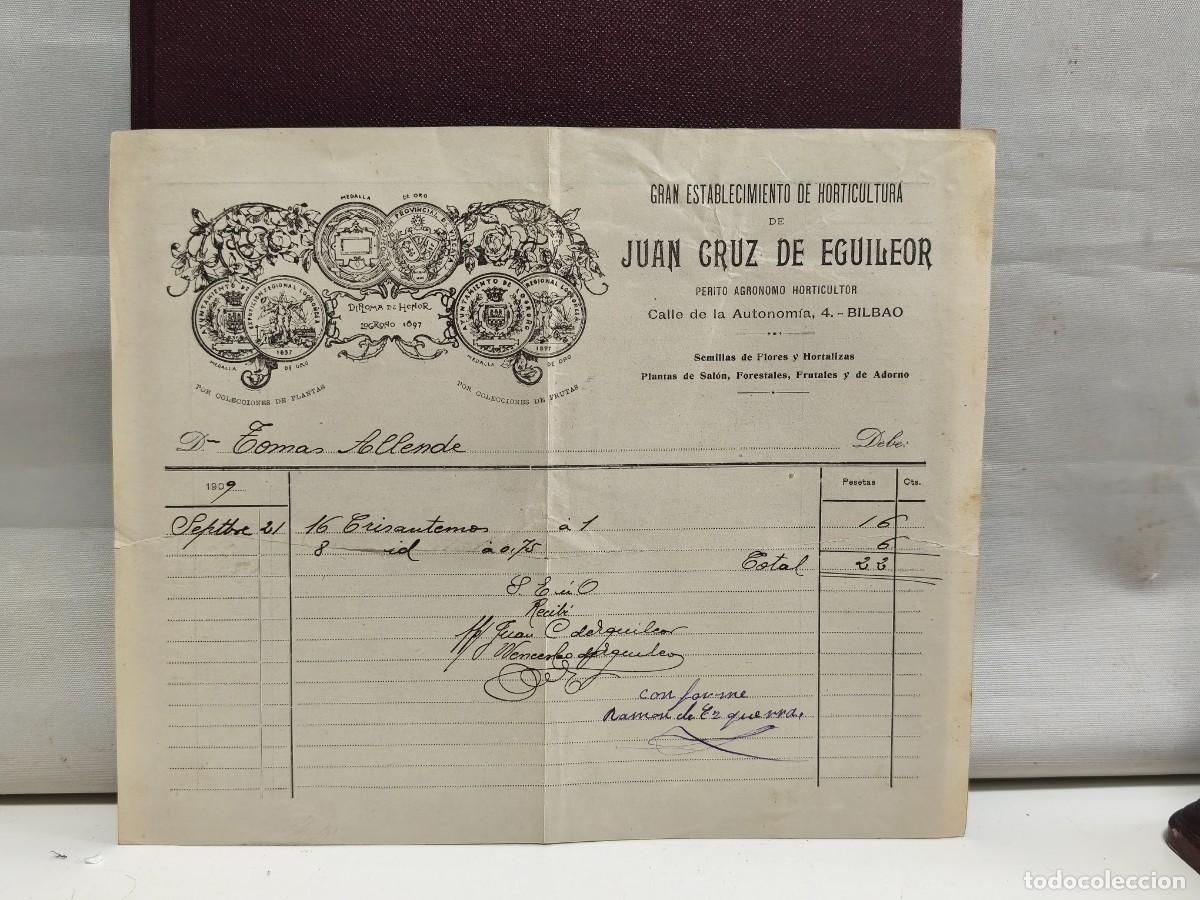 GRAN ESTABLECIMIENTO DE HORTICULTURA
DE
JUAN CRUZ DE EGUILEOR
PERITO AGRONOMO HORTICULTOR
Calle de la Autonomía, 4. - BILBAO
Semillas de Flores y Hortalizas
Plantas de Salón, Forestales, Frutales y de Adorno
MEDALLA DE ORO
AYUNTAMIENTO DE
REGIONAL LOGROÑESA
1897
MEDALLA DE ORO
POR COLECCIONES DE PLANTAS
DIPLOMA DE HONOR
LOGROÑO 1897
AYUNTAMIENTO DE LOGROÑO
REGIONAL LOGROÑESA
1897
MEDALLA DE ORO
POR COLECCIONES DE FRUTAS
Dn Tomas Allende Debe:
1909 Pesetas Cts.
Septbre 21 16 Crisantemos á 1 16
8 id á 0,75 6
Total 22
S. E ú O
Recibí
Juan C de Eguileor
Wenceslao de Eguileor
conforme
Ramon de Ezquerra
todocoleccion